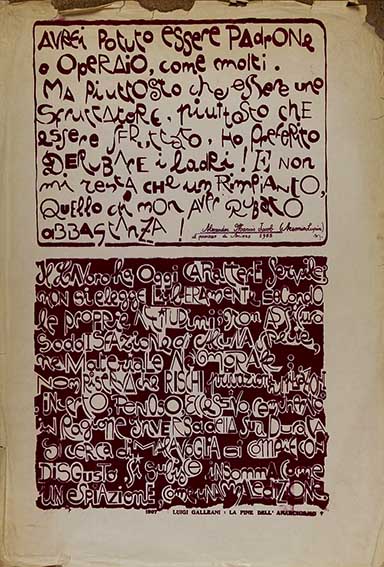 AVREI POTUTO ESSERE PADRONE
O OPERAIO, COME MOLTI.
MA PIUTTOSTO CHE ESSERE UNO
SFRUTTATORE, PIUTTOSTO CHE
ESSERE SFRUTTATO, HO PREFERITO
DERUBARE I LADRI! E NON
MI RESTA CHE UN RIMPIANTO,
QUELLO DI NON AVER RUBATO
ABBASTANZA!
Alexander Jacob
1905
Il lavoro ha oggi carattere servile
non si elegge liberamente secondo
le proprie attitudini; non assicura
soddisfazione di alcuna specie,
né materiale né morale;
non riserba che rischi, privazioni, umiliazioni
incerto, penoso, eccessivo
in ragione inversa della sua durata
si cerca di mala voglia si compie con
disgusto si subisce insomma come
un'espiazione, come una maledizione
1907 LUIGI GALLEANI : LA FINE DELL' ANARCHISMO ?